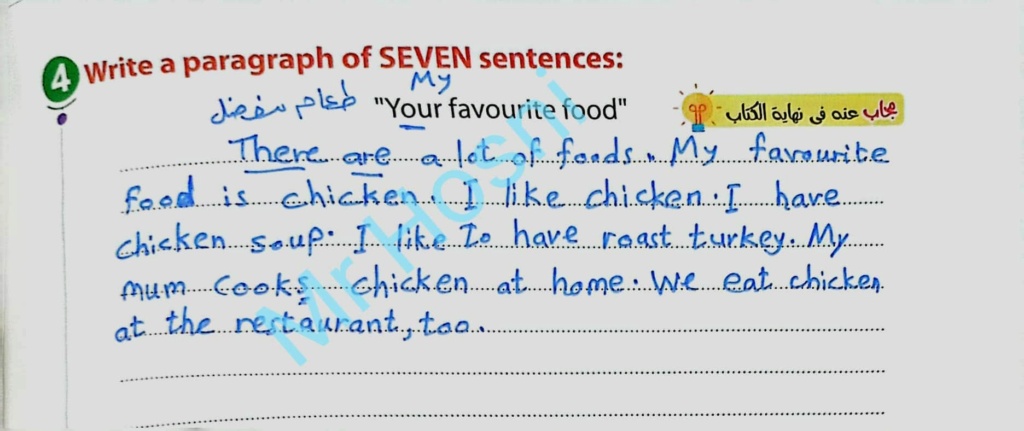 4 Write a paragraph of SEVEN sentences:
My
طعام مفضل "Your favourite food" يجاب عنه فى نهاية الكتاب
There are a lot of foods. My favourite
food is chicken. I like chicken. I have
chicken soup. I like to have roast turkey. My
mum cooks chicken at home. We eat chicken
at the restaurant, too.
Mr Hosni